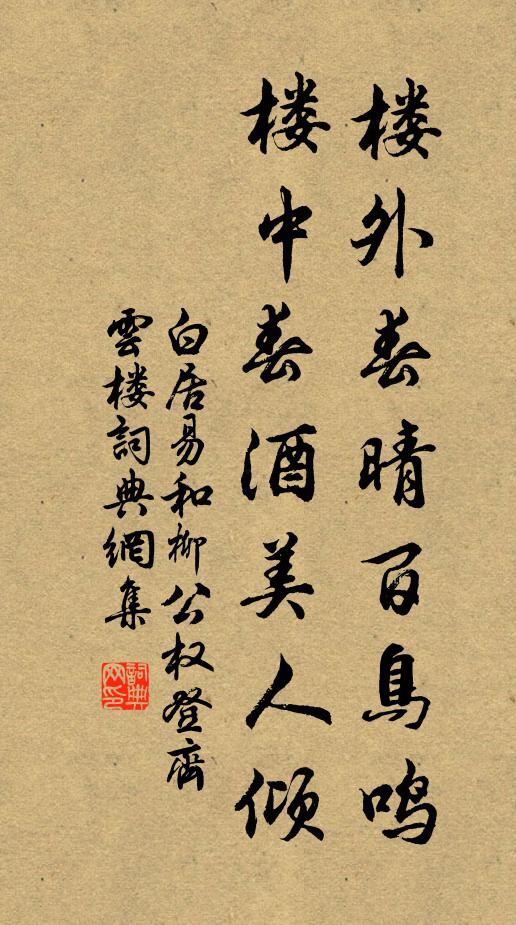 楼外春晴百鳥鳴
楼中春酒美人傾
白居易和柳公权登齊
雲楼詞典網集
詞典網印